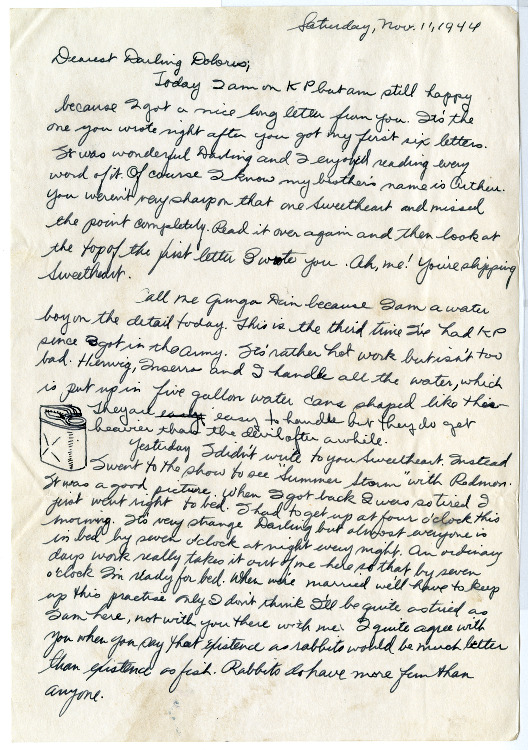 Saturday, Nov. 11, 1944
Dearest Darling Dolores;
Today I am on KP but am still happy
because I got a nice long letter from you. Its the
one you wrote right after you got my first six letters.
It was wonderful Darling and I enjoyed reading every
word of it. Of course I know my brother's name is Arthur.
You weren't very sharp on that one Sweetheart and missed
the point completely. Read it over again and then look at
the top of the first letter I wrote you. Ah, me! You're slipping
Sweetheart.
Call me Gunga Din because I am a water
boy on the detail today. This is the third time I've had KP
since I got in the Army. It's rather hot work but isn't too
bad. Herwig, Inserra and I handle all the water, which
is put up in five gallon water cans shaped like this
They are easy to handle but they do get
heavier than the devil after awhile.
Yesterday I didn't write to you Sweetheart. Instead
I went to the show to see "Summer Storm" with Redmon.
It was a good picture. When I got back I was so tired I
just went right to bed. I had to get up at four o'clock this
morning. Its very strange Darling but almost everyone is
in bed by seven o'clock at night every night. An ordinary
days work really takes it out of me here so that by seven
o'clock I'm ready for bed. When we're married we'll have to keep
up this practise only I don't think I'll be quite as tired as
I am here, not with you there with me. I quite agree with
you when you say that existence as rabbits would be much better
than existence as fish. Rabbits do have more fun than
anyone.